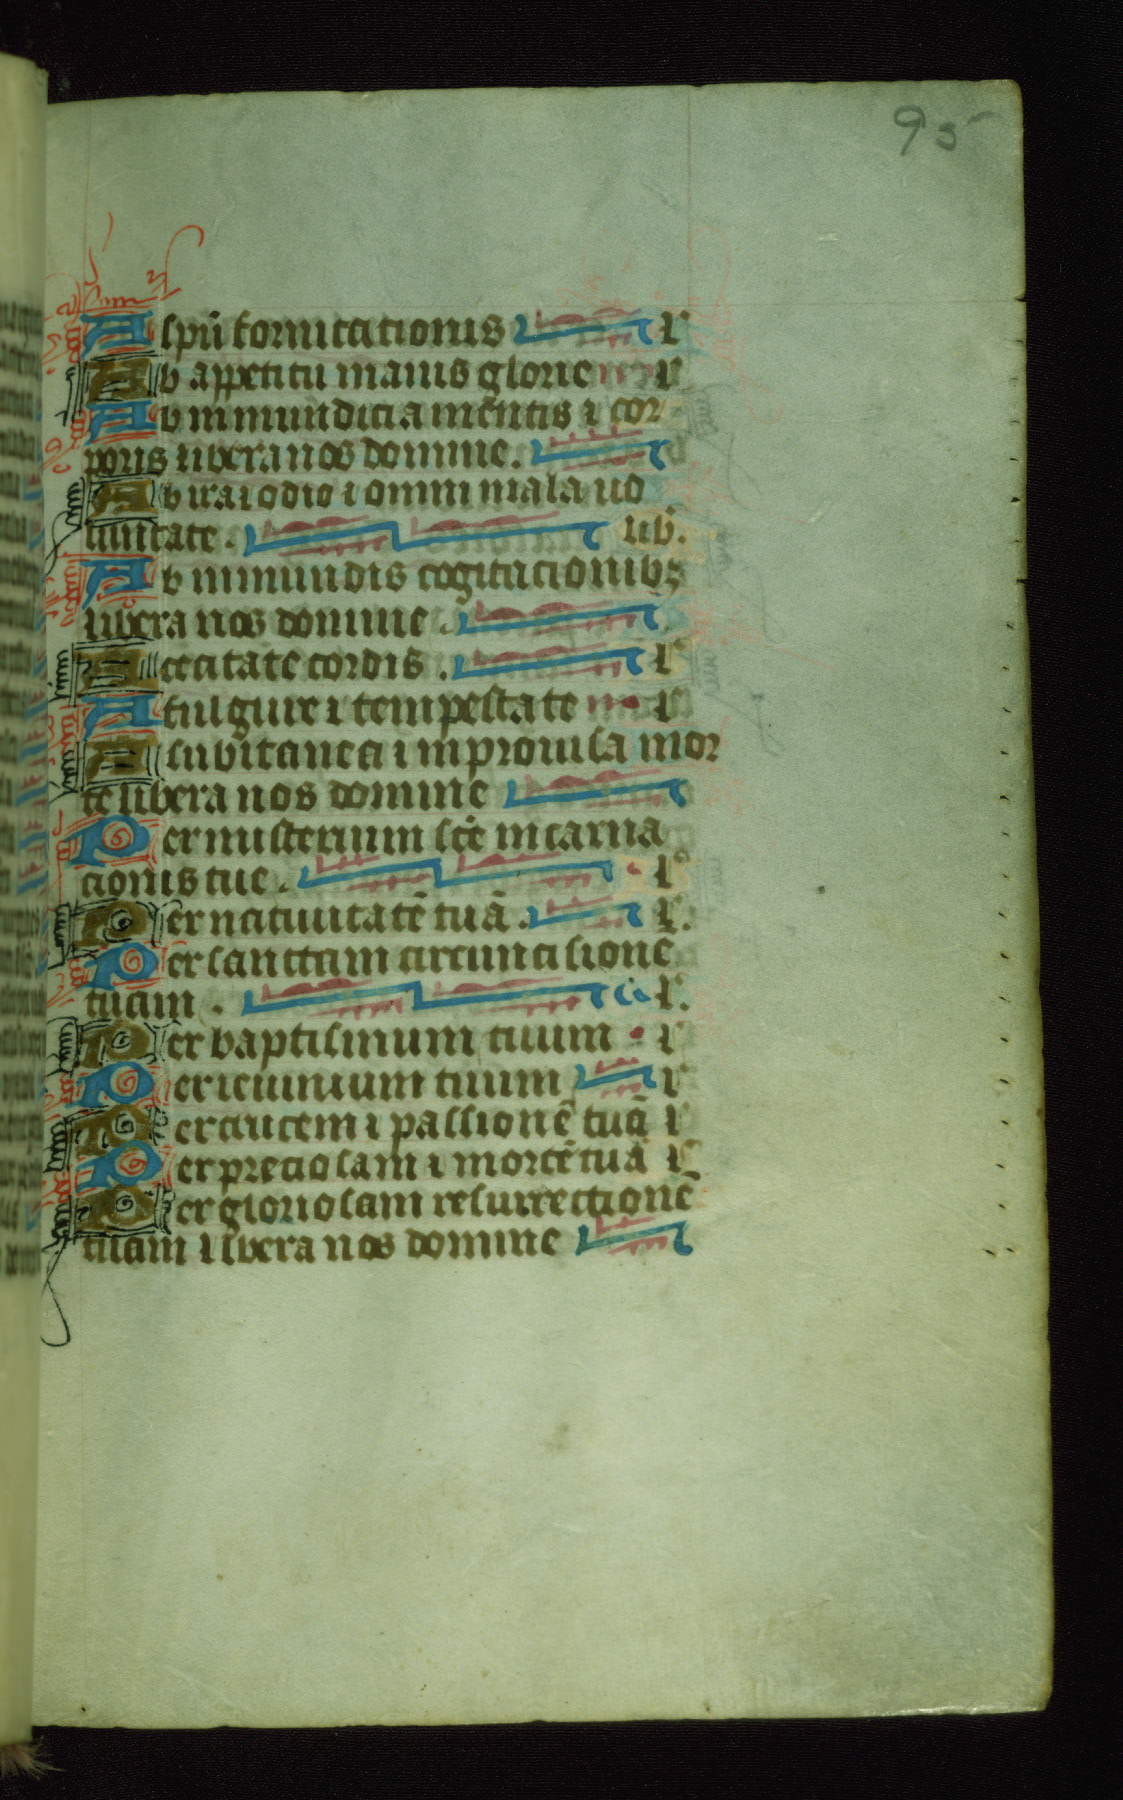 95
A spū fornicationis l
Ab appetitu inanis glorie l
Ab inmundicia mentis ⁊ cor
poris libera nos domine.
Ab ira ⁊ odio ⁊ omni mala uo
luntate. lib.
Ab inmundis cogitacionibꝫ
libera nos domine.
A cecitate cordis. l
A fulgure ⁊ tempestate l
A subitanea ⁊ improuisa mor
te libera nos domine
Per misterium scē incarna
cionis tue. l
Per natiuitatē tuā. l.
Per sanctam circuncisionē
tuam. l.
Per baptismum tuum l
Per ieiunium tuum l
Per crucem ⁊ passionē tuā l
Per preciosam ⁊ mortē tuā l
Per gloriosam resurrectionē
tuam libera nos domine